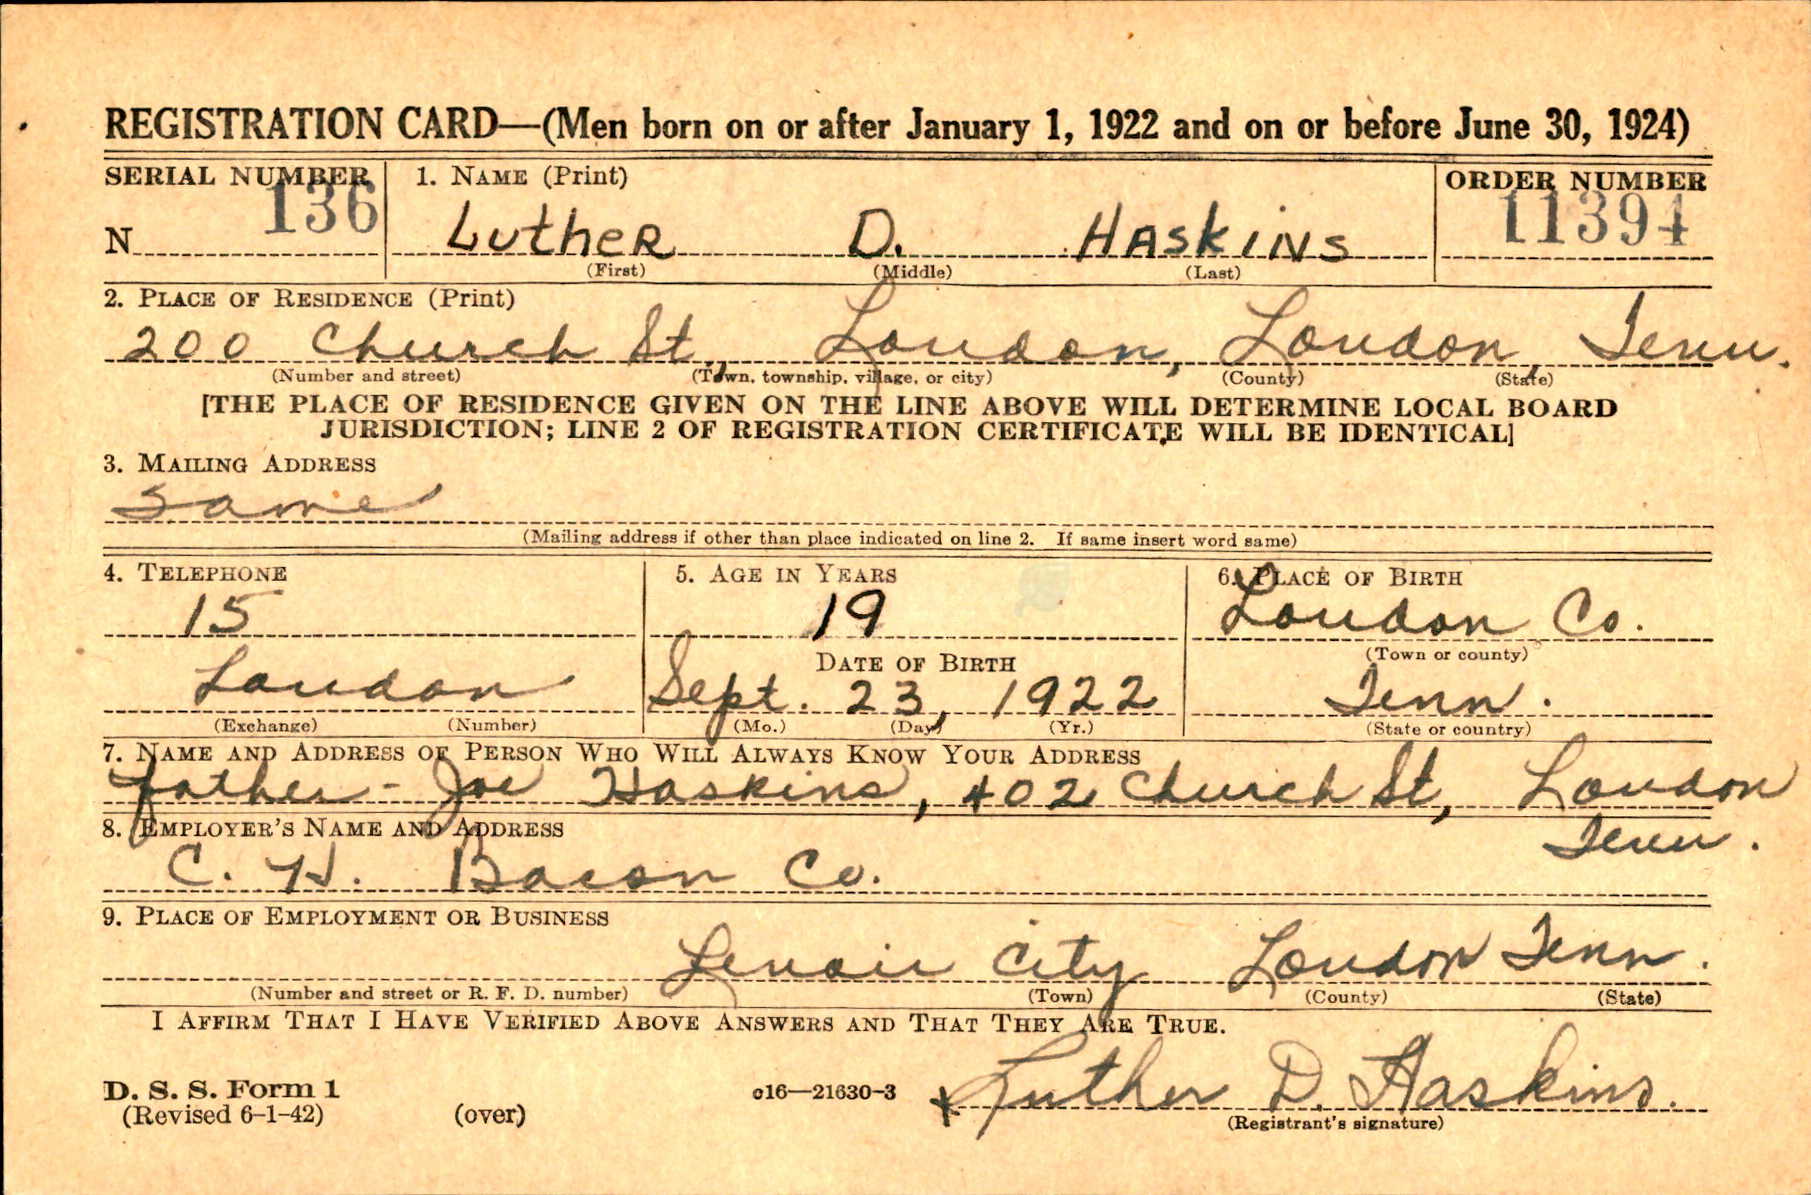 REGISTRATION CARD—(Men born on or after January 1, 1922 and on or before June 30, 1924)
SERIAL NUMBER 1. NAME (Print) ORDER NUMBER
N 136 Luther D. Haskins 11394
(First) (Middle) (Last)
2. PLACE OF RESIDENCE (Print)
200 Church St., Loudon, Loudon, Tenn.
(Number and street) (Town, township, village, or city) (County) (State)
[THE PLACE OF RESIDENCE GIVEN ON THE LINE ABOVE WILL DETERMINE LOCAL BOARD
JURISDICTION; LINE 2 OF REGISTRATION CERTIFICATE WILL BE IDENTICAL]
3. MAILING ADDRESS
Same
(Mailing address if other than place indicated on line 2. If same insert word same)
4. TELEPHONE 5. AGE IN YEARS 6. PLACE OF BIRTH
15 19 Loudon Co.
DATE OF BIRTH (Town or county)
Loudon Sept. 23, 1922 Tenn.
(Exchange) (Number) (Mo.) (Day) (Yr.) (State or country)
7. NAME AND ADDRESS OF PERSON WHO WILL ALWAYS KNOW YOUR ADDRESS
father - Joe Haskins, 402 Church St, Loudon
8. EMPLOYER'S NAME AND ADDRESS Tenn.
C. H. Bacon Co.
9. PLACE OF EMPLOYMENT OR BUSINESS
Lenoir City Loudon Tenn.
(Number and street or R. F. D. number) (Town) (County) (State)
I AFFIRM THAT I HAVE VERIFIED ABOVE ANSWERS AND THAT THEY ARE TRUE.
D. S. S. Form 1 c16—21630-3 x Luther D. Haskins.
(Revised 6-1-42) (over) (Registrant's signature)